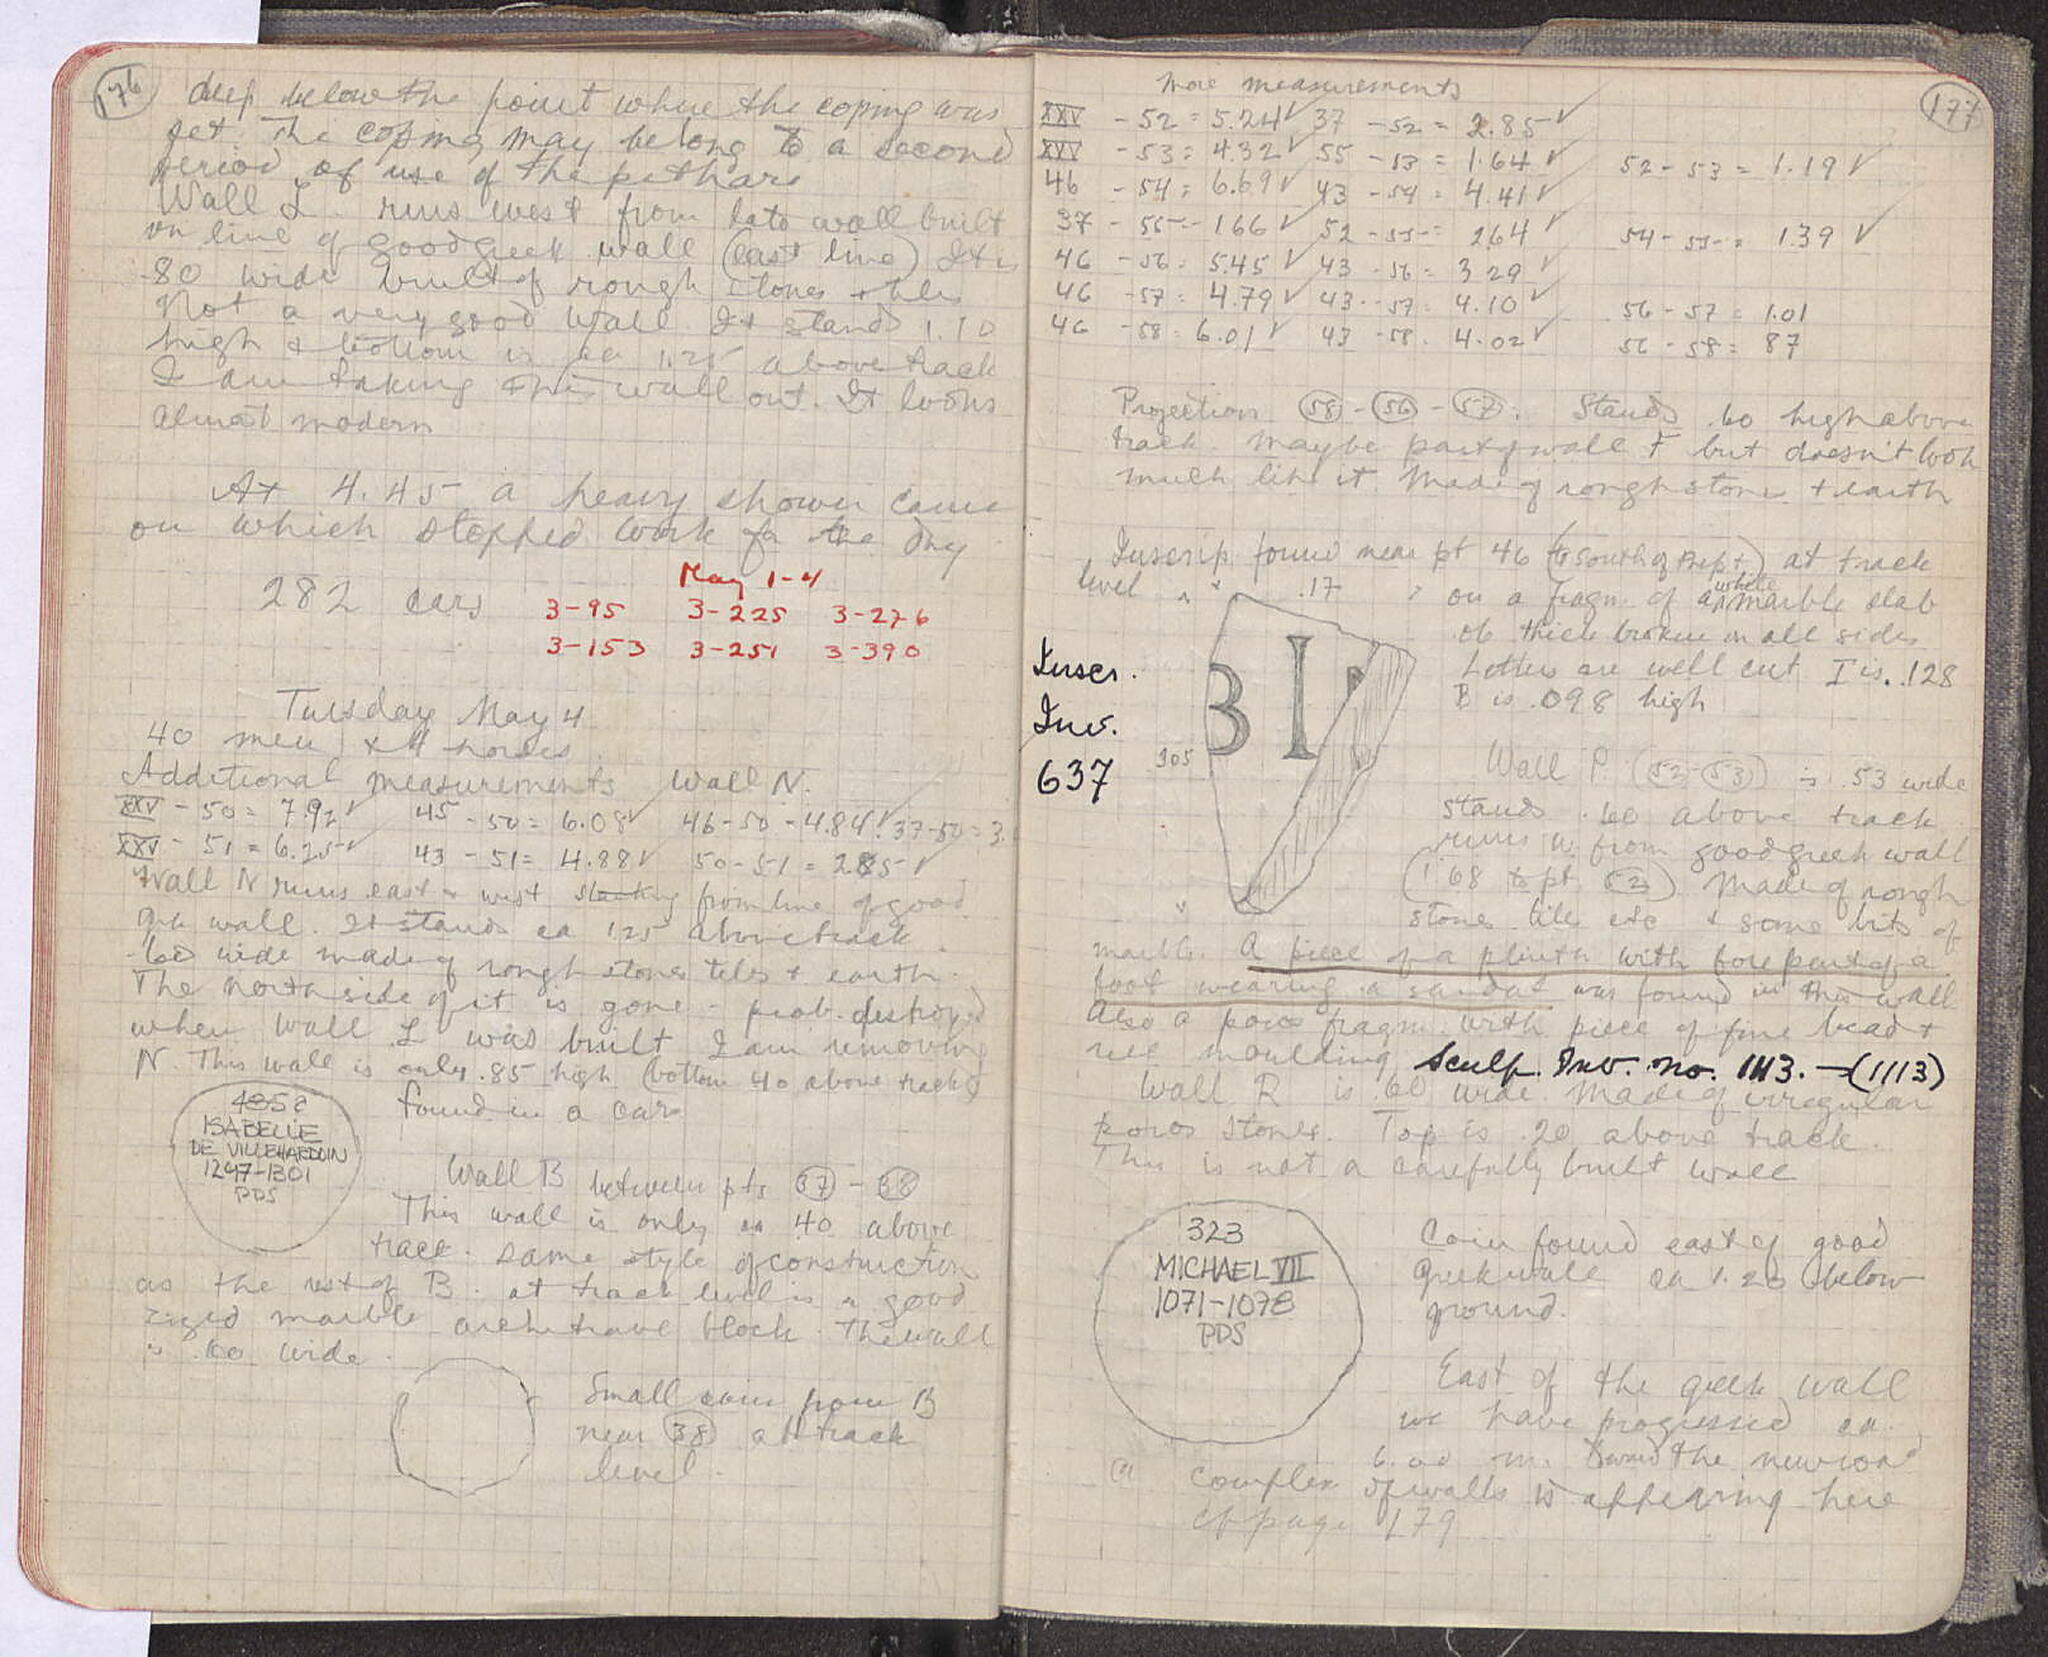 176
deep below the point where the coping was
set. The coping may belong to a second
period of use of the pithari
Wall L runs west from late wall built
on line of good Greek wall (east line) It is
.80 wide built of rough stones + tiles
Not a very good wall. It stands 1.10
high & bottom is ca 1.25 above track
I am taking this wall out. It looks
almost modern
At 4.45 a heavy shower came
on which stopped work for the day
282 cars
May 1-4
3-95 3-225 3-276
3-153 3-251 3-390
Tuesday May 4
40 men & 4 horses
Additional measurements Wall N.
XXV - 50 = 7.92 ✓ 45 - 50 = 6.08 ✓ 46-50 = 4.84 ✓ 37-50 = 3.
XXV - 51 = 6.25 ✓ 43 - 51 = 4.88 ✓ 50-51 = 2.85 ✓
Wall N runs east & west starting from line of good
Grk wall. It stands ca 1.25 above track.
.60 wide made of rough stones tiles + earth.
The north side of it is gone - prob. destroyed
when Wall L was built I am removing
N. This wall is only .85 high (bottom 40 above track)
4852
ISABELLE
DE VILLEHARDUIN
1297-1301
PDS
found in a car
Wall B between pts 37 - 38
This wall is only ca 40 above
track. same style of construction
as the rest of B. at track level is a good
sized marble architrave block. The wall
is .60 wide.
Small coin from B
near 38 at track
level.
177
More measurements
XXV - 52 = 5.24 ✓ 37 - 52 = 2.85 ✓
XXV - 53 = 4.32 ✓ 55 - 53 = 1.64 ✓ 52-53 = 1.19 ✓
46 - 54 = 6.69 ✓ 43 - 54 = 4.41 ✓
37 - 55 = 166 ✓ 52 - 55 = 264 ✓ 54-55 = 1.39 ✓
46 - 56 = 5.45 ✓ 43 - 56 = 3 29 ✓
46 - 57 = 4.79 ✓ 43 - 57 = 4.10 ✓ 56-57 = 1.01
46 - 58 = 6.01 ✓ 43 - 58 = 4.02 ✓ 56-58 = 87
Projection 58 - 56 - 57. Stands .60 high above
track. Maybe part of wall F but doesn't look
much like it Made of rough stone + earth
Inscrip found near pt 46 (to south of ) at track
level
.17
on a fragm. of a white marble slab
.06 thick broken on all sides
Letters are well cut I is .128
B is .098 high
Inscr.
Inv.
637
305
BI
Wall P (52-53) is .53 wide
stands .60 above track
runs w from good Greek wall
(1.68 to pt. 52) Made of rough
stones tiles etc & some bits of
marble. A piece of a plinth with fore part of a
foot wearing a sandal was found in this wall
Also a poros fragm. with piece of fine bead +
reel moulding Sculp. Inv. no. 1113. - (1113)
Wall R is .60 wide. Made of irregular
poros stones. Top is .20 above track.
This is not a carefully built wall
323
MICHAEL VII
1071-1078
PDS
Coin found east of good
Greek wall ca 1.20 below
ground.
East of the Greek wall
we have progressed ca.
6.00 m. toward the new road
a complex of walls is appearing here
cf page 179